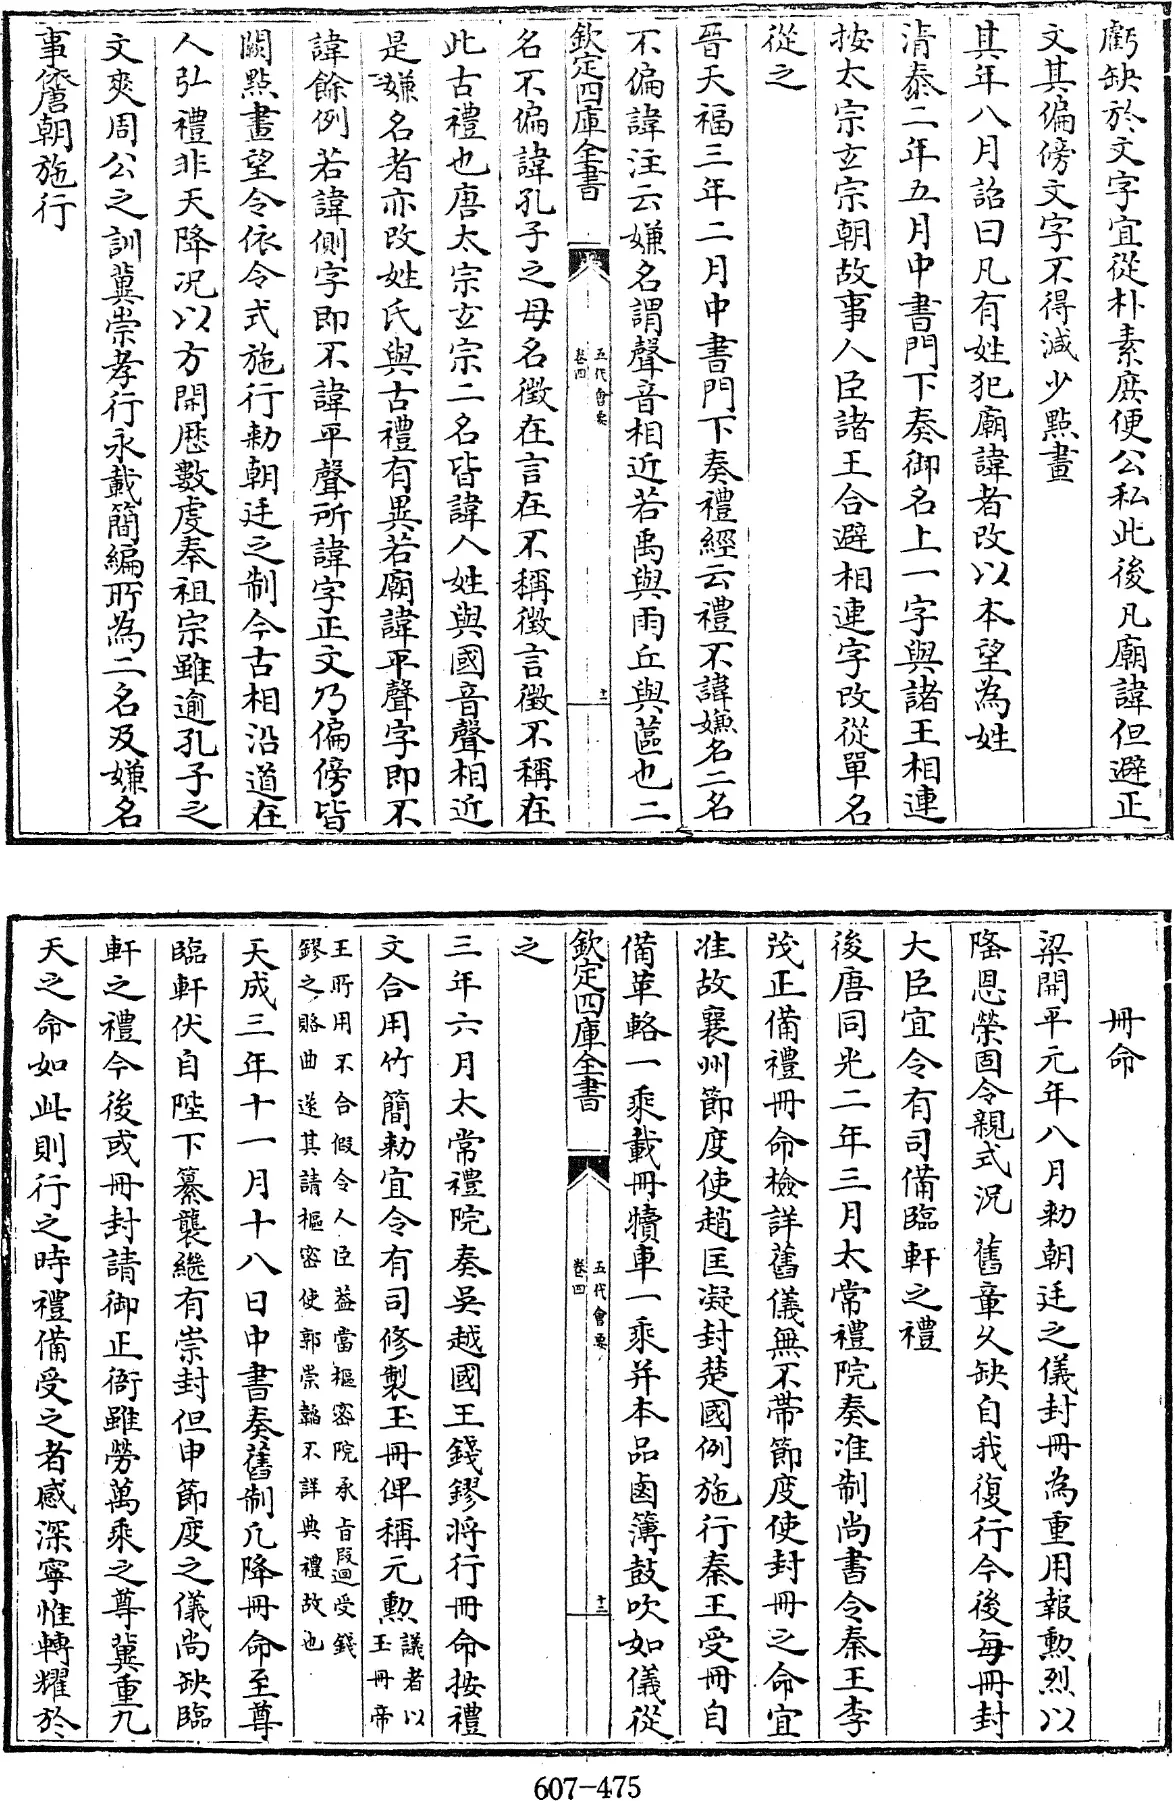 虧缺於文字宜從朴素庶便公私此後凡廟諱但避正
文其偏傍文字不得減少點畫
其年八月詔曰凡有姓犯廟諱者改以本望為姓
清泰二年五月中書門下奏御名上一字與諸王相連
按太宗玄宗朝故事人臣諸王合避相連字改從單名
從之
晉天福三年二月中書門下奏禮經云禮不諱嫌名二名
不偏諱注云嫌名謂聲音相近若禹與雨丘與蓲也二
欽定四庫全書
五代會要
卷四
十一
名不偏諱孔子之母名徵在言在不稱徵言徵不稱在
此古禮也唐太宗玄宗二名皆諱人姓與國音聲相近
是嫌名者亦改姓氏與古禮有異若廟諱平聲字即不
諱餘例若諱側字即不諱平聲所諱字正文乃偏傍皆
闕點畫望令依令式施行勅朝廷之制今古相沿道在
人弘禮非天降况以方開歷數虔奉祖宗雖逾孔子之
文爽周公之訓冀崇孝行永載簡編所為二名及嫌名
事依唐朝施行
冊命
梁開平元年八月勅朝廷之儀封冊為重用報勲烈以
隆恩榮固令親式況舊章久缺自我復行今後每冊封
大臣宜令有司備臨軒之禮
後唐同光二年三月太常禮院奏准制尚書令秦王李
茂正備禮冊命檢詳舊儀無不帶節度使封冊之命宜
准故襄州節度使趙匡凝封楚國例施行秦王受冊自
備革輅一乘載冊犢車一乘并本品鹵簿鼓吹如儀從
欽定四庫全書
五代會要
卷四
十二
之
三年六月太常禮院奏吳越國王錢鏐將行冊命按禮
文合用竹簡勅宜令有司修製玉冊俾稱元勲議者以玉冊帝
王所用不合假令人臣葢當樞密院承旨段迴受錢
鏐之賂曲遂其請樞密使郭崇韜不詳典禮故也
天成三年十一月十八日中書奏舊制凡降冊命至尊
臨軒伏自陛下纂襲繼有崇封但申節度之儀尚缺臨
軒之禮今後或冊封請御正衙雖勞萬乘之尊冀重九
天之命如此則行之時禮備受之者感深寧惟轉耀於
607-475